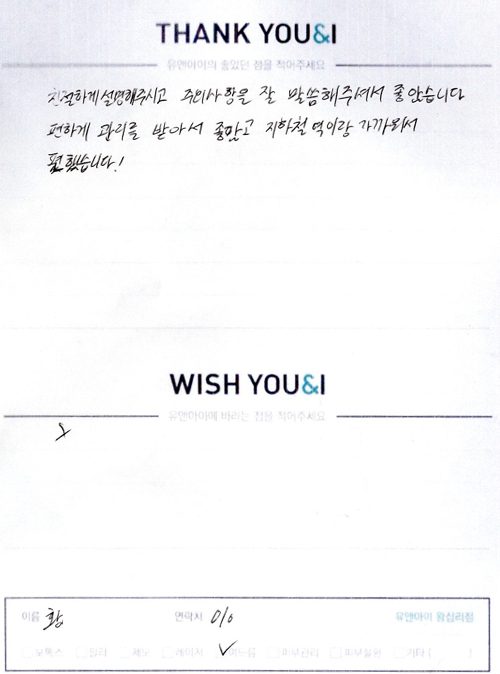 THANK YOU&I
유앤아이의 좋았던 점을 적어주세요
친절하게 설명해주시고 주의사항을 잘 말씀해주셔서 좋았습니다
편하게 관리를 받아서 좋았고 지하철역이랑 가까워서
편했습니다!
WISH YOU&I
유앤아이에 바라는 점을 적어주세요
이름 황 연락처 010 유앤아이 왕십리점
보톡스 필러 제모 레이저 여드름 피부관리 피부질환 기타 ( )